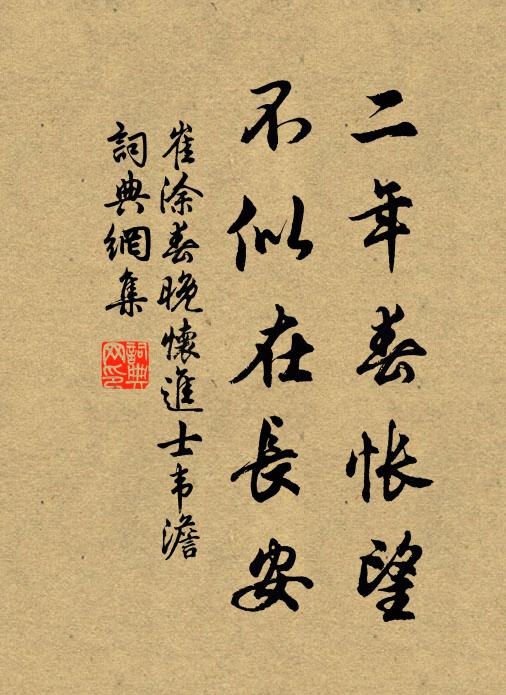 二年春帐望
不似在長安
崔涂春晚懷進士韦澹
詞典網集
詞典网印